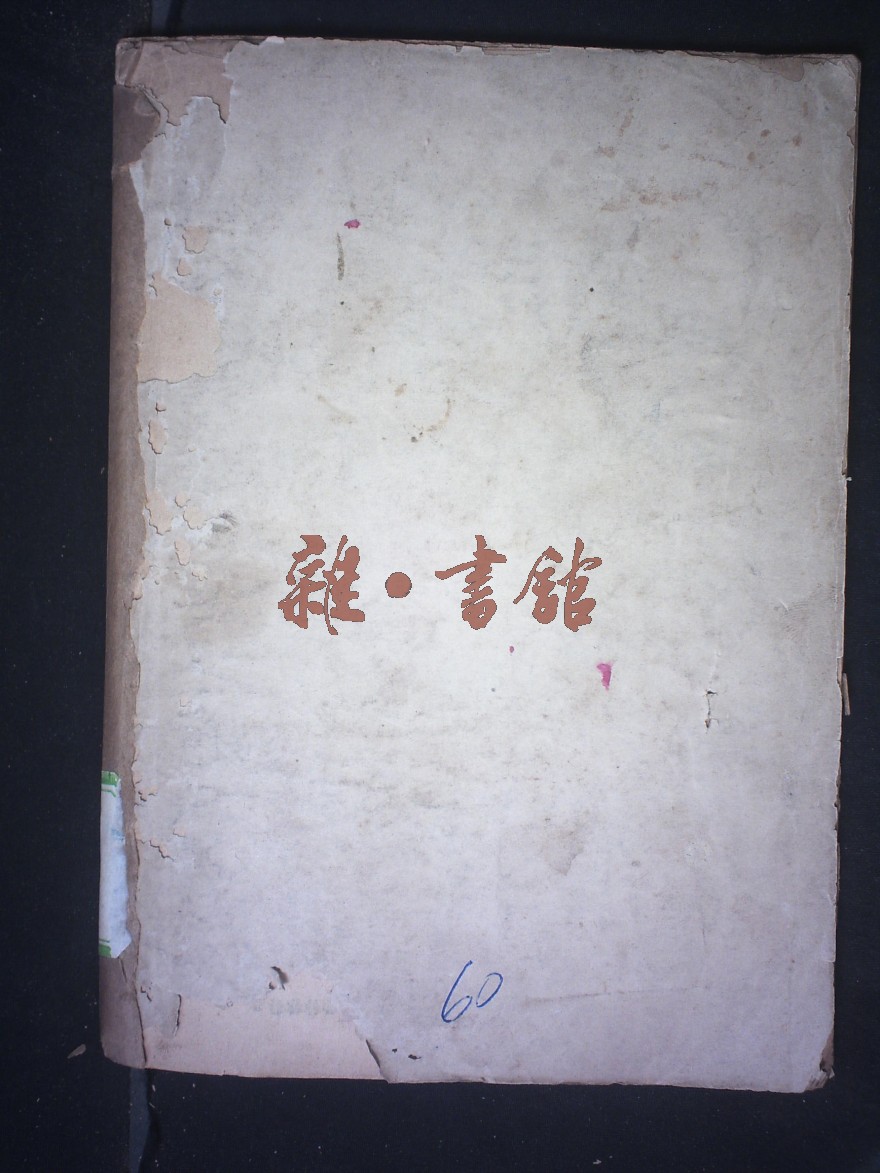 雜·書館
60